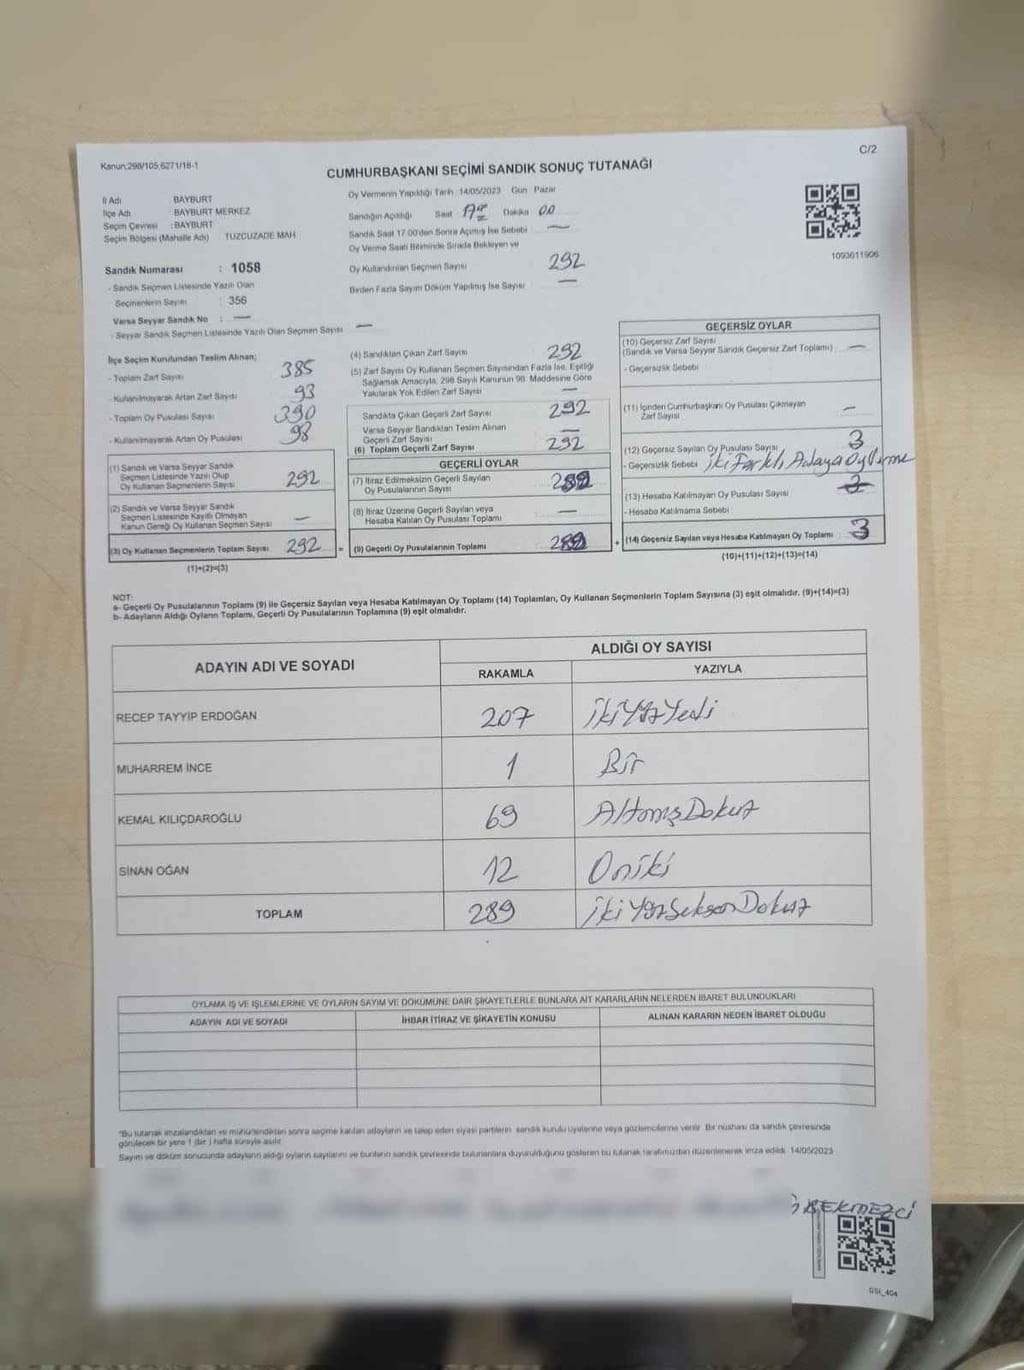 Kanun:298/105,6271/18-1
C/2
CUMHURBAŞKANI SEÇİMİ SANDIK SONUÇ TUTANAĞI
İl Adı BAYBURT
İlçe Adı BAYBURT MERKEZ
Seçim Çevresi : BAYBURT
Seçim Bölgesi (Mahalle Adı) TUZCUZADE MAH.
Sandık Numarası : 1058
- Sandık Seçmen Listesinde Yazılı Olan
Seçmenlerin Sayısı : 356
Varsa Seyyar Sandık No : —
- Seyyar Sandık Seçmen Listesinde Yazılı Olan Seçmen Sayısı —
Oy Vermenin Yapıldığı Tarih 14/05/2023 Gün Pazar
Sandığın Açıldığı Saat Dakika 00
Sandık Saat 17.00'den Sonra Açılmış İse Sebebi —
Oy Verme Saati Bitiminde Sırada Bekleyen ve
Oy Kullandırılan Seçmen Sayısı 292
Birden Fazla Sayım Döküm Yapılmış İse Sayısı —
1093611906
İlçe Seçim Kurulundan Teslim Alınan;
- Toplam Zarf Sayısı 385
- Kullanılmayarak Artan Zarf Sayısı 93
- Toplam Oy Pusulası Sayısı 390
- Kullanılmayarak Artan Oy Pusulası 98
(1) Sandık ve Varsa Seyyar Sandık
Seçmen Listesinde Yazılı Olup
Oy Kullanan Seçmenlerin Sayısı 292
(2) Sandık ve Varsa Seyyar Sandık
Seçmen Listesinde Kayıtlı Olmayan
Kanun Gereği Oy Kullanan Seçmen Sayısı —
(3) Oy Kullanan Seçmenlerin Toplam Sayısı 292 =
(1)+(2)=(3)
(4) Sandıktan Çıkan Zarf Sayısı 292
(5) Zarf Sayısı Oy Kullanan Seçmen Sayısından Fazla İse, Eşitliği
Sağlamak Amacıyla, 298 Sayılı Kanunun 98. Maddesine Göre
Yakılarak Yok Edilen Zarf Sayısı —
Sandıkta Çıkan Geçerli Zarf Sayısı 292
Varsa Seyyar Sandıktan Teslim Alınan
Geçerli Zarf Sayısı —
(6) Toplam Geçerli Zarf Sayısı 292
GEÇERLİ OYLAR
(7) İtiraz Edilmeksizin Geçerli Sayılan
Oy Pusulalarının Sayısı 289
(8) İtiraz Üzerine Geçerli Sayılan veya
Hesaba Katılan Oy Pusulası Toplamı —
(9) Geçerli Oy Pusulalarının Toplamı 289 +
GEÇERSİZ OYLAR
(10) Geçersiz Zarf Sayısı
(Sandık ve Varsa Seyyar Sandık Geçersiz Zarf Toplamı) —
- Geçersizlik Sebebi
(11) İçinden Cumhurbaşkanı Oy Pusulası Çıkmayan
Zarf Sayısı —
(12) Geçersiz Sayılan Oy Pusulası Sayısı 3
- Geçersizlik Sebebi İki Farklı Adaya Oy Verme
(13) Hesaba Katılmayan Oy Pusulası Sayısı 3
- Hesaba Katılmama Sebebi
(14) Geçersiz Sayılan veya Hesaba Katılmayan Oy Toplamı 3
(10)+(11)+(12)+(13)=(14)
NOT:
a- Geçerli Oy Pusulalarının Toplamı (9) ile Geçersiz Sayılan veya Hesaba Katılmayan Oy Toplamı (14) Toplamları, Oy Kullanan Seçmenlerin Toplam Sayısına (3) eşit olmalıdır. (9)+(14)=(3)
b- Adayların Aldığı Oyların Toplamı, Geçerli Oy Pusulalarının Toplamına (9) eşit olmalıdır.
ADAYIN ADI VE SOYADI ALDIĞI OY SAYISI
RAKAMLA YAZIYLA
RECEP TAYYİP ERDOĞAN 207 İkiYüzYedi
MUHARREM İNCE 1 Bir
KEMAL KILIÇDAROĞLU 69 AltmışDokuz
SİNAN OĞAN 12 Oniki
TOPLAM 289 İkiYüzSeksenDokuz
OYLAMA İŞ VE İŞLEMLERİNE VE OYLARIN SAYIM VE DÖKÜMÜNE DAİR ŞİKAYETLERLE BUNLARA AİT KARARLARIN NELERDEN İBARET BULUNDUKLARI
ADAYIN ADI VE SOYADI İHBAR İTİRAZ VE ŞİKAYETİN KONUSU ALINAN KARARIN NEDEN İBARET OLDUĞU
*Bu tutanak imzalandıktan ve mühürlendikten sonra seçime katılan adayların ve talep eden siyasi partilerin sandık kurulu üyelerine veya gözlemcilerine verilir. Bir nüshası da sandık çevresinde
görülecek bir yere 1 (bir) hafta süreyle asılır.
Sayım ve döküm sonucunda adayların aldığı oyların sayılarını ve bunların sandık çevresinde bulunanlara duyurulduğunu gösteren bu tutanak tarafımızdan düzenlenerek imza edildi. 14/05/2023
BEKMEZCİ
GSI_404